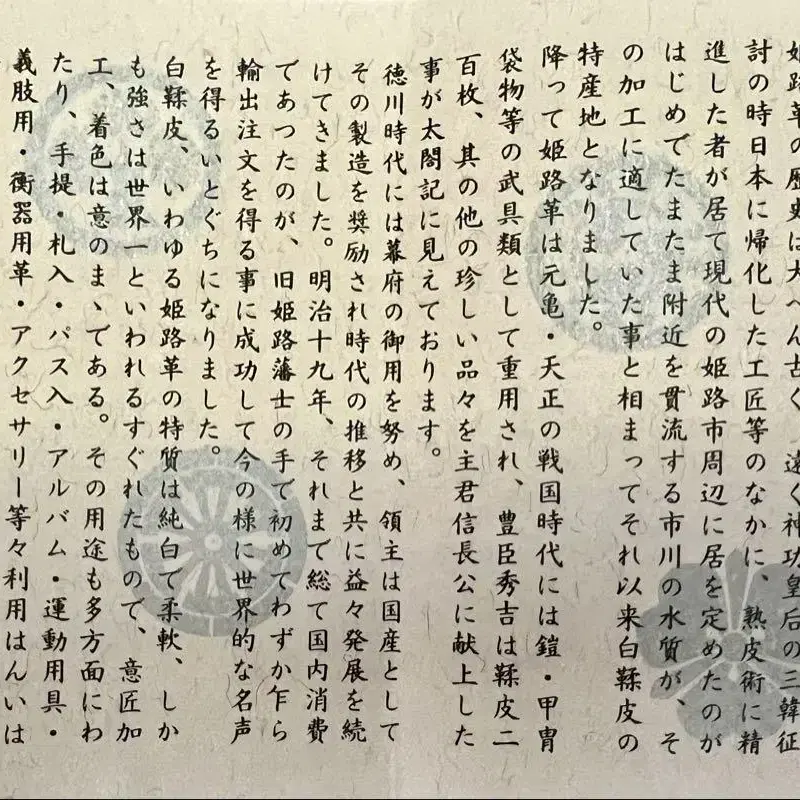 姫路革の歴史は大へん古く、遠く神功皇后の三韓征
討の時日本に帰化した工匠等のなかに、熟皮術に精
進した者が居て現代の姫路市周辺に居を定めたのが
はじめでたまたま附近を貫流する市川の水質が、そ
の加工に適していた事と相まってそれ以来白鞣皮の
特産地となりました。
降って姫路革は元亀・天正の戦国時代には鎧・甲冑
袋物等の武具類として重用され、豊臣秀吉は鞣皮二
百枚、其の他の珍しい品々を主君信長公に献上した
事が太閤記に見えております。
徳川時代には幕府の御用を努め、領主は国産として
その製造を奨励され時代の推移と共に益々発展を続
けてきました。明治十九年、それまで総て国内消費
であつたのが、旧姫路藩士の手で初めてわずか乍ら
輸出注文を得る事に成功して今の様に世界的な名声
を得るいとぐちになりました。
白鞣皮、いわゆる姫路革の特質は純白で柔軟、しか
も強さは世界一といわれるすぐれたもので、意匠加
工、着色は意のまゝである。その用途も多方面にわ
たり、手提・札入・パス入・アルバム・運動用具・
義肢用・衡器用革・アクセサリー等々利用はんいは